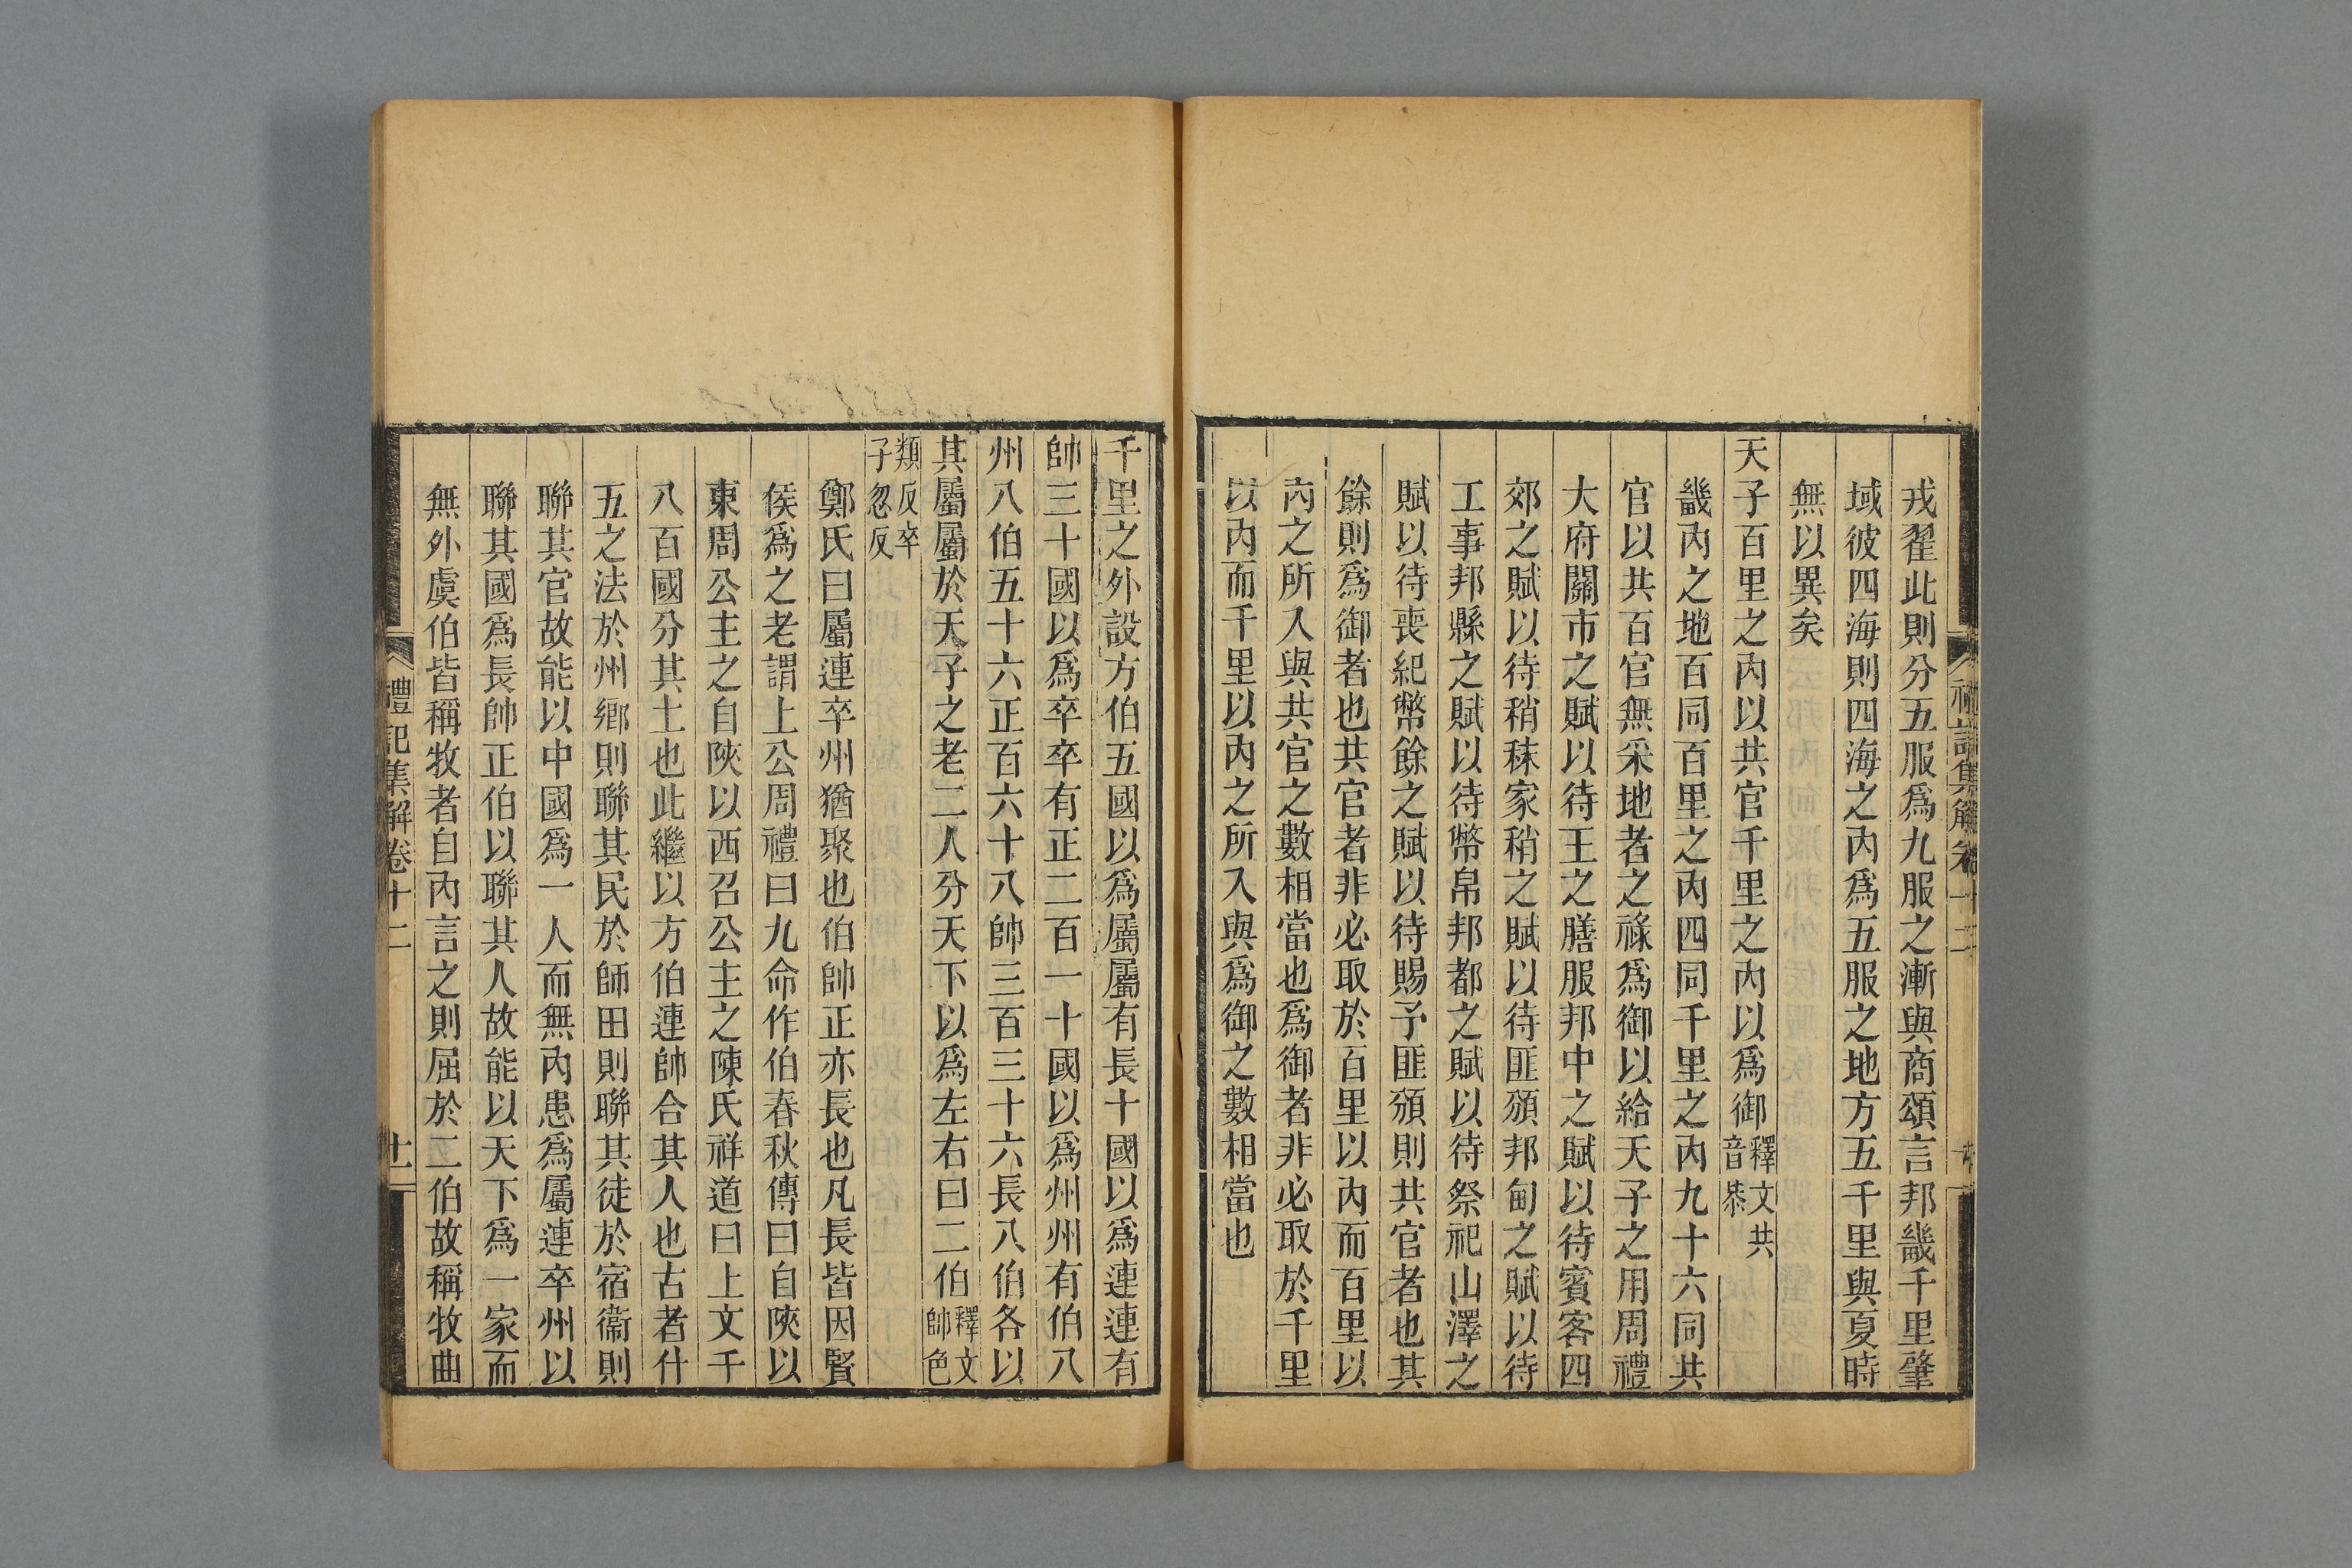 戎翟此則分五服爲九服之漸與商頌言邦畿千里肇
域彼四海則四海之內爲五服之地方五千里與夏時
無以異矣
天子百里之內以共官千里之內以爲御釋文共音恭
畿內之地百同百里之內四同千里之內九十六同共
官以共百官官無采地者之祿爲御以給天子之用周禮
大府關市之賦以待王之膳服邦中之賦以待賓客四
郊之賦以待稍秣家稍之賦以待匪頒邦甸之賦以待
工事邦縣之賦以待幣帛邦都之賦以待祭祀山澤之
賦以待喪紀幣餘之賦以待賜予匪頒則共官者也其
餘則爲御者也共官者非必取於百里以內而百里以
內之所入與共官之數相當也爲御者非必取於千里
以內而千里以內之所入與爲御之數相當也
千里之外設方伯五國以爲屬屬有長十國以爲連連有
帥三十國以爲卒卒有正二百一十國以爲州州有伯八
州八伯五十六正百六十八帥三百三十六長八伯各以
其屬屬於天子之老二人分天下以爲左右曰二伯釋文帥色
類反卒子忽反
鄭氏曰屬連卒州猶聚也伯帥正亦長也凡長皆因賢
侯爲之老謂上公周禮曰九命作伯春秋傳曰自陝以
東周公主之自陝以西召公主之陳氏祥道曰上文千
八百國分其土也此繼以方伯連帥合其人也古者什
五之法於州鄉則聯其民於師田則聯其徒於宿衞則
聯其官故能以中國爲一人而無內患爲屬連卒州以
聯其國爲長帥正伯以聯其人故能以天下爲一家而
無外虞伯皆稱牧者自內言之則屈於二伯故稱牧曲
禮記集解卷十二
十一